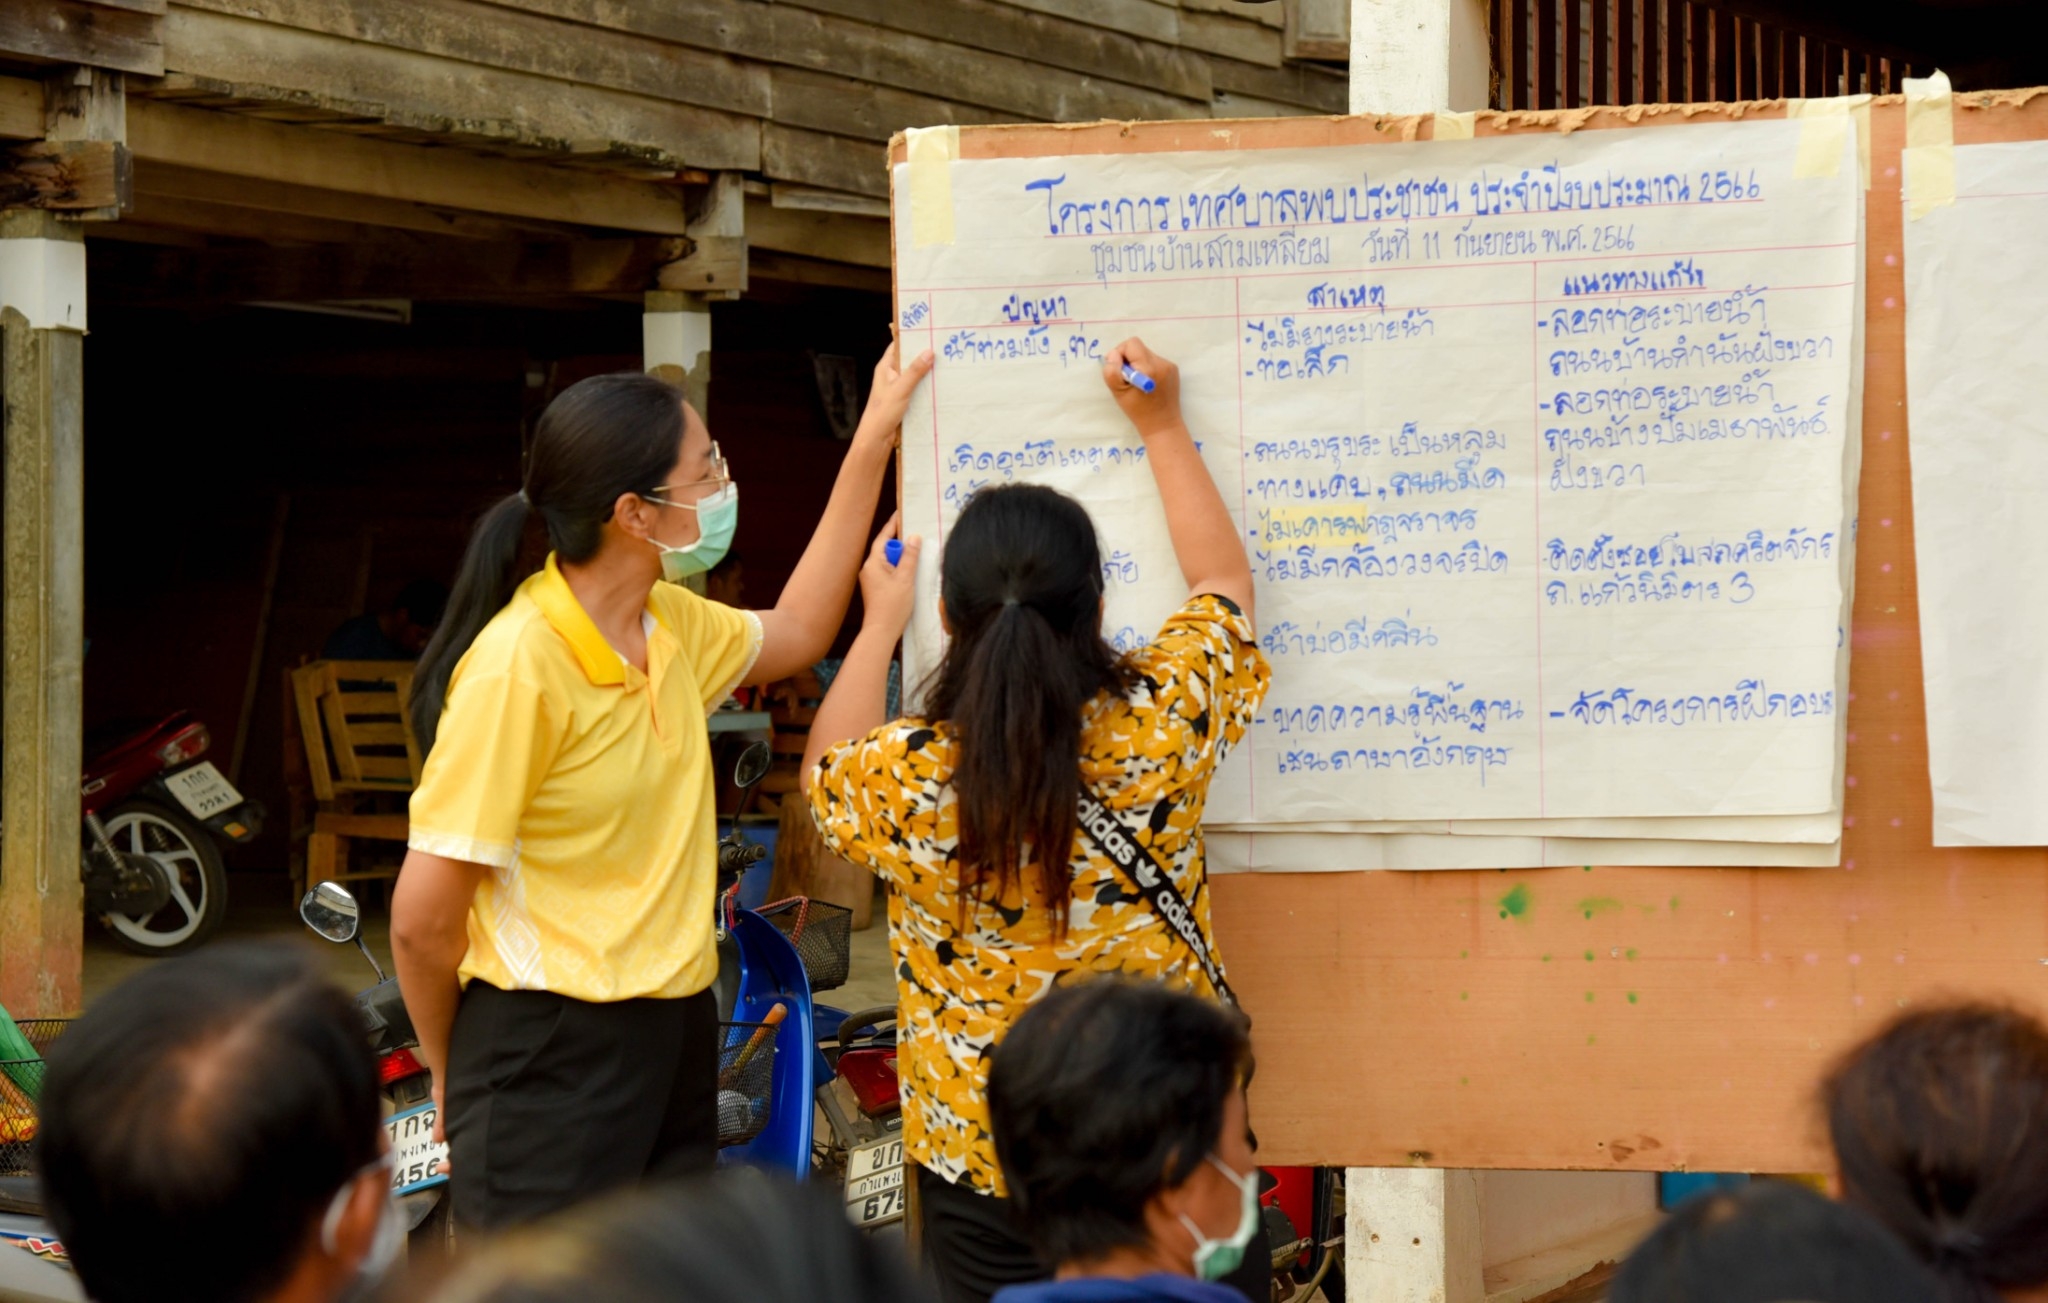 โครงการเทศบาลพบประชาชน ประจำปีงบประมาณ 2566
ชุมชนบ้านสามเหลี่ยม วันที่ 11 กันยายน พ.ศ. 2566
ปัญหา
น้ำท่วมขัง
เกิดอุบัติเหตุจาก
ภัย
สาเหตุ
- ไม่มีรางระบายน้ำ
- ท่อเล็ก
- ถนนขรุขระ เป็นหลุม
- ทางแคบ, ถนนมืด
- ไม่เคารพกฎจราจร
- ไม่มีกล้องวงจรปิด
- น้ำบ่อมีกลิ่น
- ขาดความรู้พื้นฐาน
เช่นภาษาอังกฤษ
แนวทางแก้ไข
- ลอกท่อระบายน้ำ
ถนนบ้านกำนันฝั่งขวา
- ลอกท่อระบายน้ำ
ถนนข้างปั๊มเมธาพันธ์
ฝั่งขวา
ถ.แก้วนิมิตร 3
- จัดโครงการฝึกอบรม
adidas
adidas
1กก
1กฉ
456
ขก
675